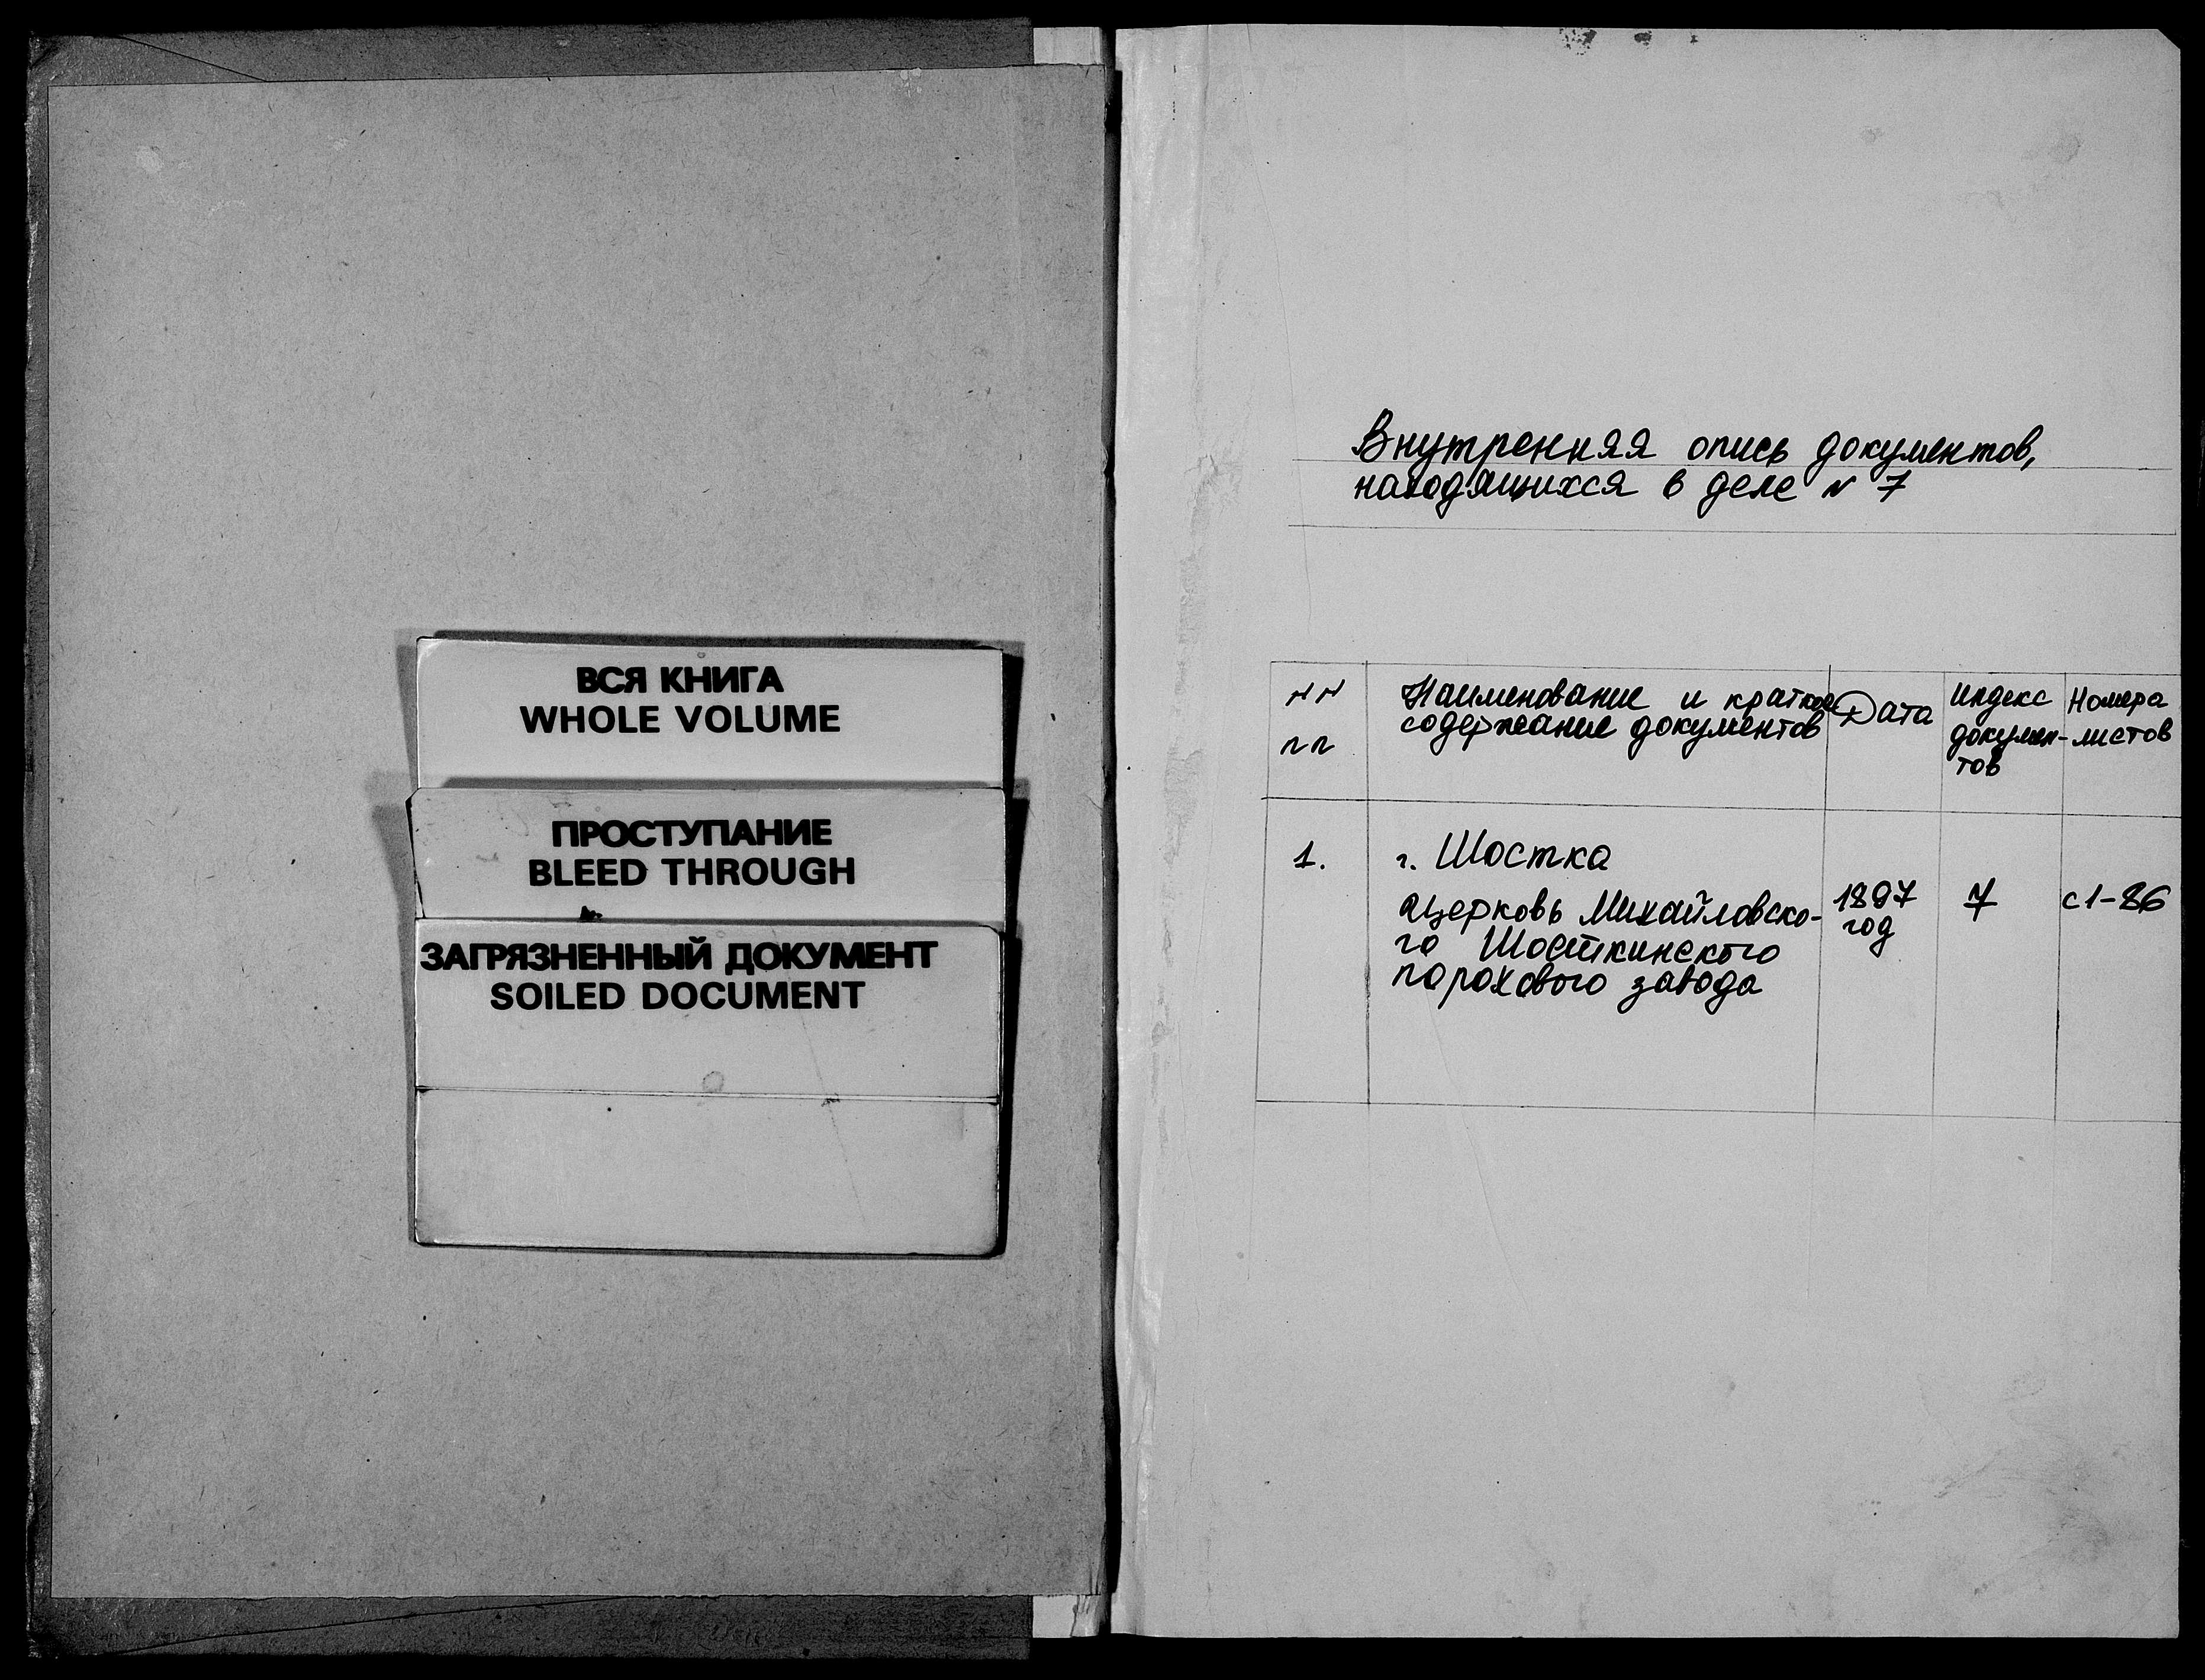 ВСЯ КНИГА
WHOLE VOLUME
ПРОСТУПАНИЕ
BLEED THROUGH
ЗАГРЯЗНЕННЫЙ ДОКУМЕНТ
SOILED DOCUMENT
Внутренняя опись документов,
находящихся в деле N 7
NN
пп
Наименование и краткое
содержание документов
Дата
Индекс
докумен-
тов
Номера
листов
1.
г. Шостка
Церковь Михайловско-
го Шосткинского
порохового завода
1897
год
7
с1-86